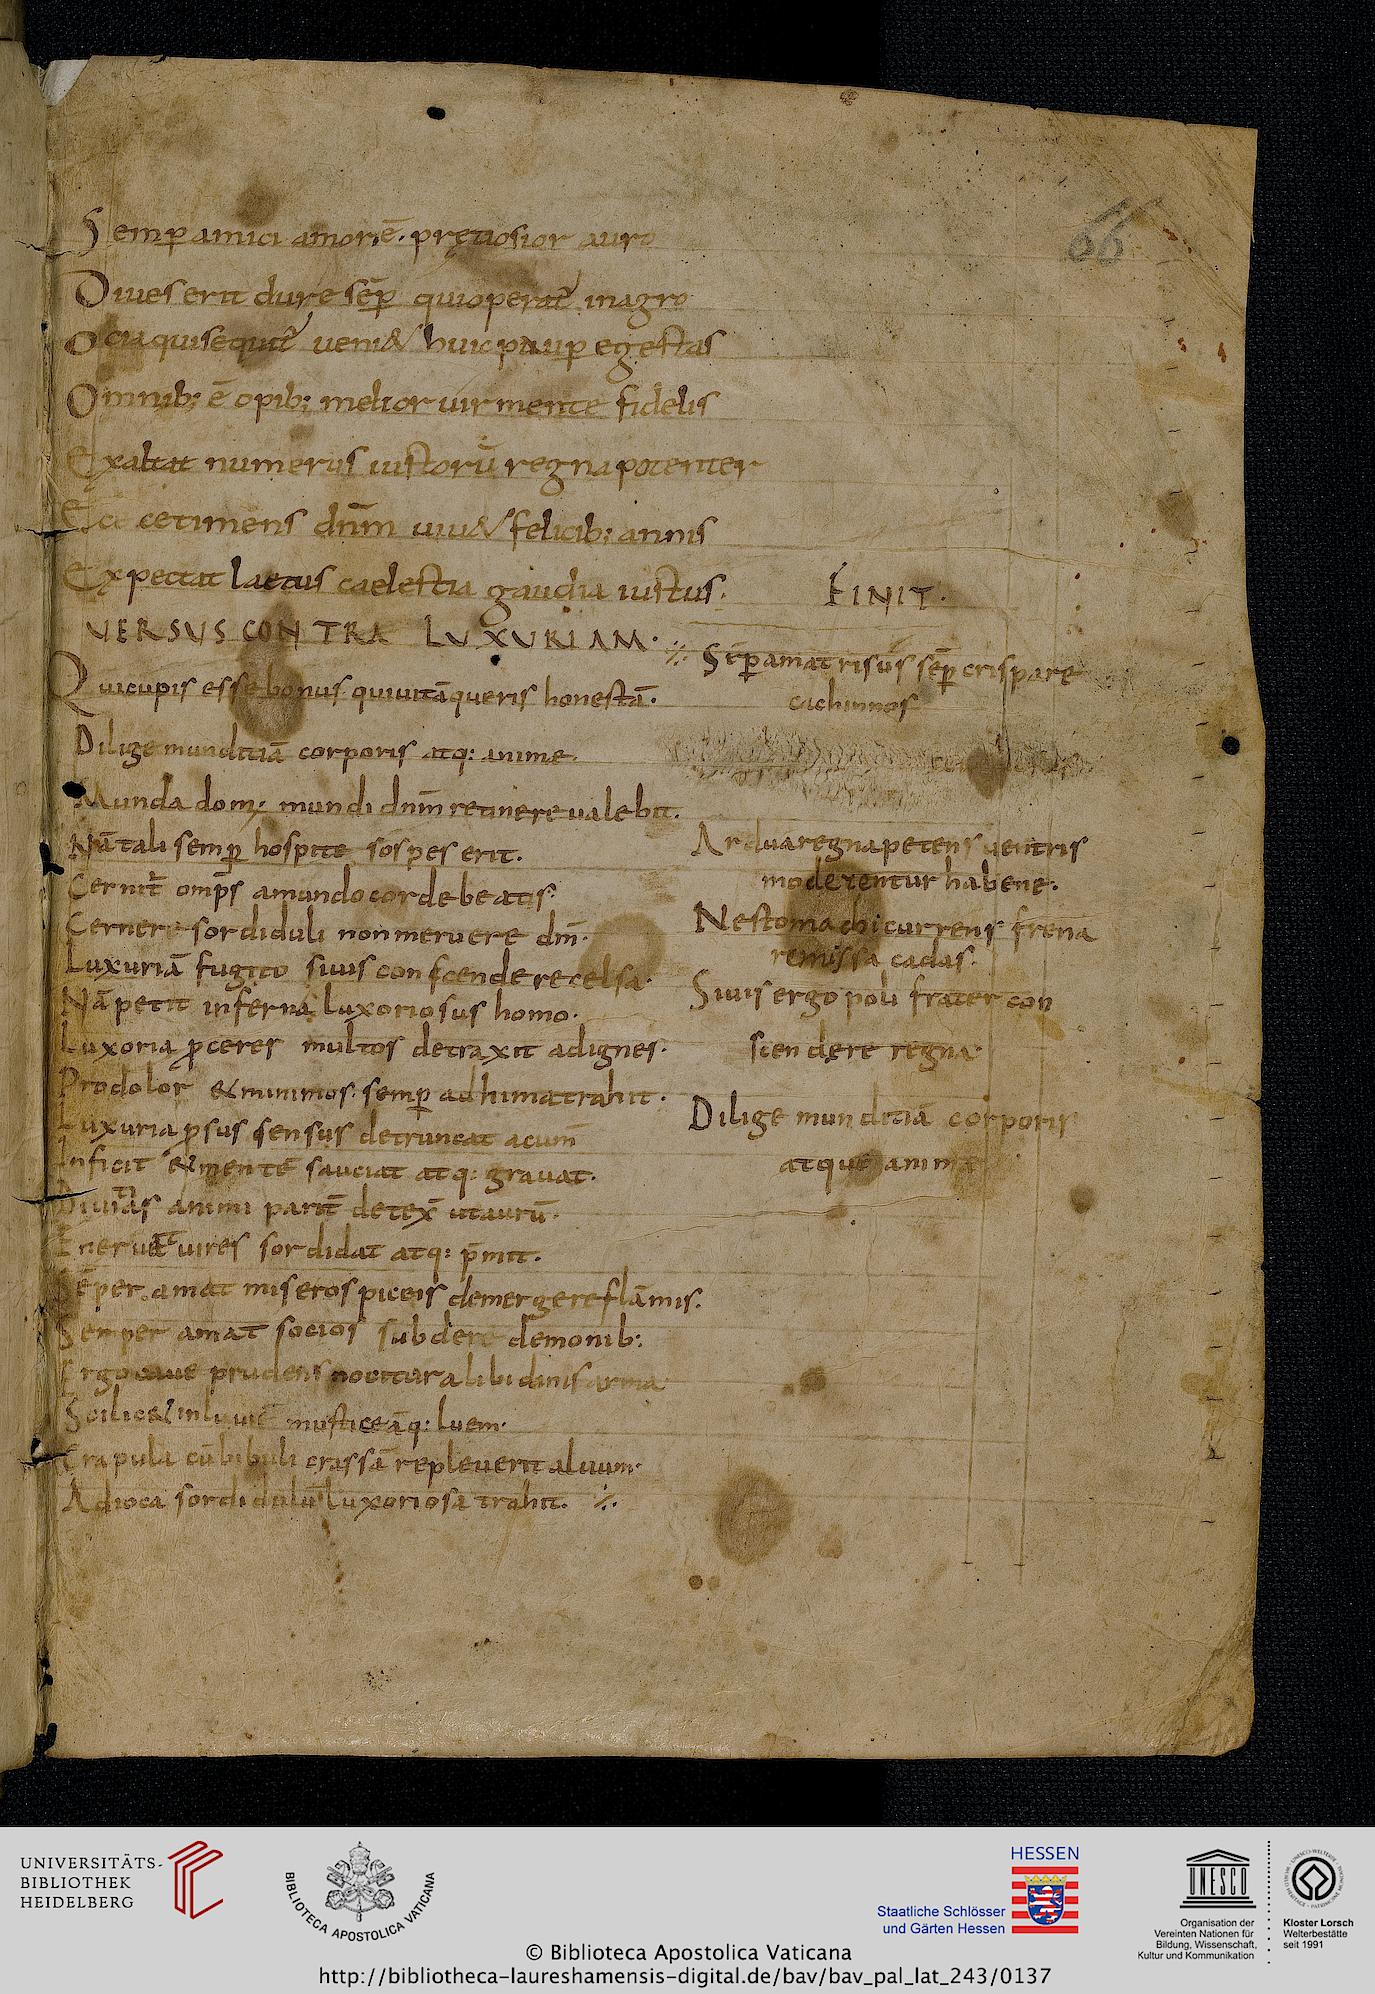 Semp amici amor ē. prętiosior auro
Diues erit dure sēp qui operat inagro
Ocia qui sequit ueni& huic paup egestas
Omnib; ē opib; melior uir mente fidelis
Exaltat numerus iustorū regna potenter
dnm uiu& felicib; annis
Expectat laetus caelestia gaudia iustus.
FINIT.
VERSUS CONTRA LUXURIAM.
Quicupis esse bonus quiuitāqueris honestā.
Dilige munditiā corporis atq: anime.
Munda dom; mundi dnm retinere ualebit.
Nā tali semp hospite sospes erit.
Cernit omps amundo corde beatis.
Cernere sordiduli non meruere dm.
Luxuriā fugito siuis conscendere celsa.
Nā petit inferna luxoriosus homo.
Luxoria pceres multos detraxit adignes.
Prodolor &minimos semp adhima trahit.
Luxuria psus sensus detruncat acum
Inficit &mentē sauciat atq: grauat.
Diuitias animi parit detex utaurū.
uires sordidat atq: pmit.
Sēper amat miseros piceis demergere flāmis.
Semper amat socios subdere demonib:
Ergo caue prudens nocitura libidinis arma
luem.
Crapula cū bibuli crassā repleuerit aluum.
Adioca sordidulū luxoriosa trahit.
Sēp amat risus sēp crispare
cachinnos
Ardua regna petens uentris
moderentur habene.
Ne stomachi currens frena
remissa cadas.
Siuis ergo poli frater con
scendere regna
Dilige munditiā corporis
atque anima
66
UNIVERSITÄTS-
BIBLIOTHEK
HEIDELBERG
BIBLIOTECA APOSTOLICA VATICANA
HESSEN
Staatliche Schlösser
und Gärten Hessen
UNESCO
Organisation der
Vereinten Nationen für
Bildung, Wissenschaft,
Kultur und Kommunikation
Kloster Lorsch
Welterbestätte
seit 1991
© Biblioteca Apostolica Vaticana
http://bibliotheca-laureshamensis-digital.de/bav/bav_pal_lat_243/0137